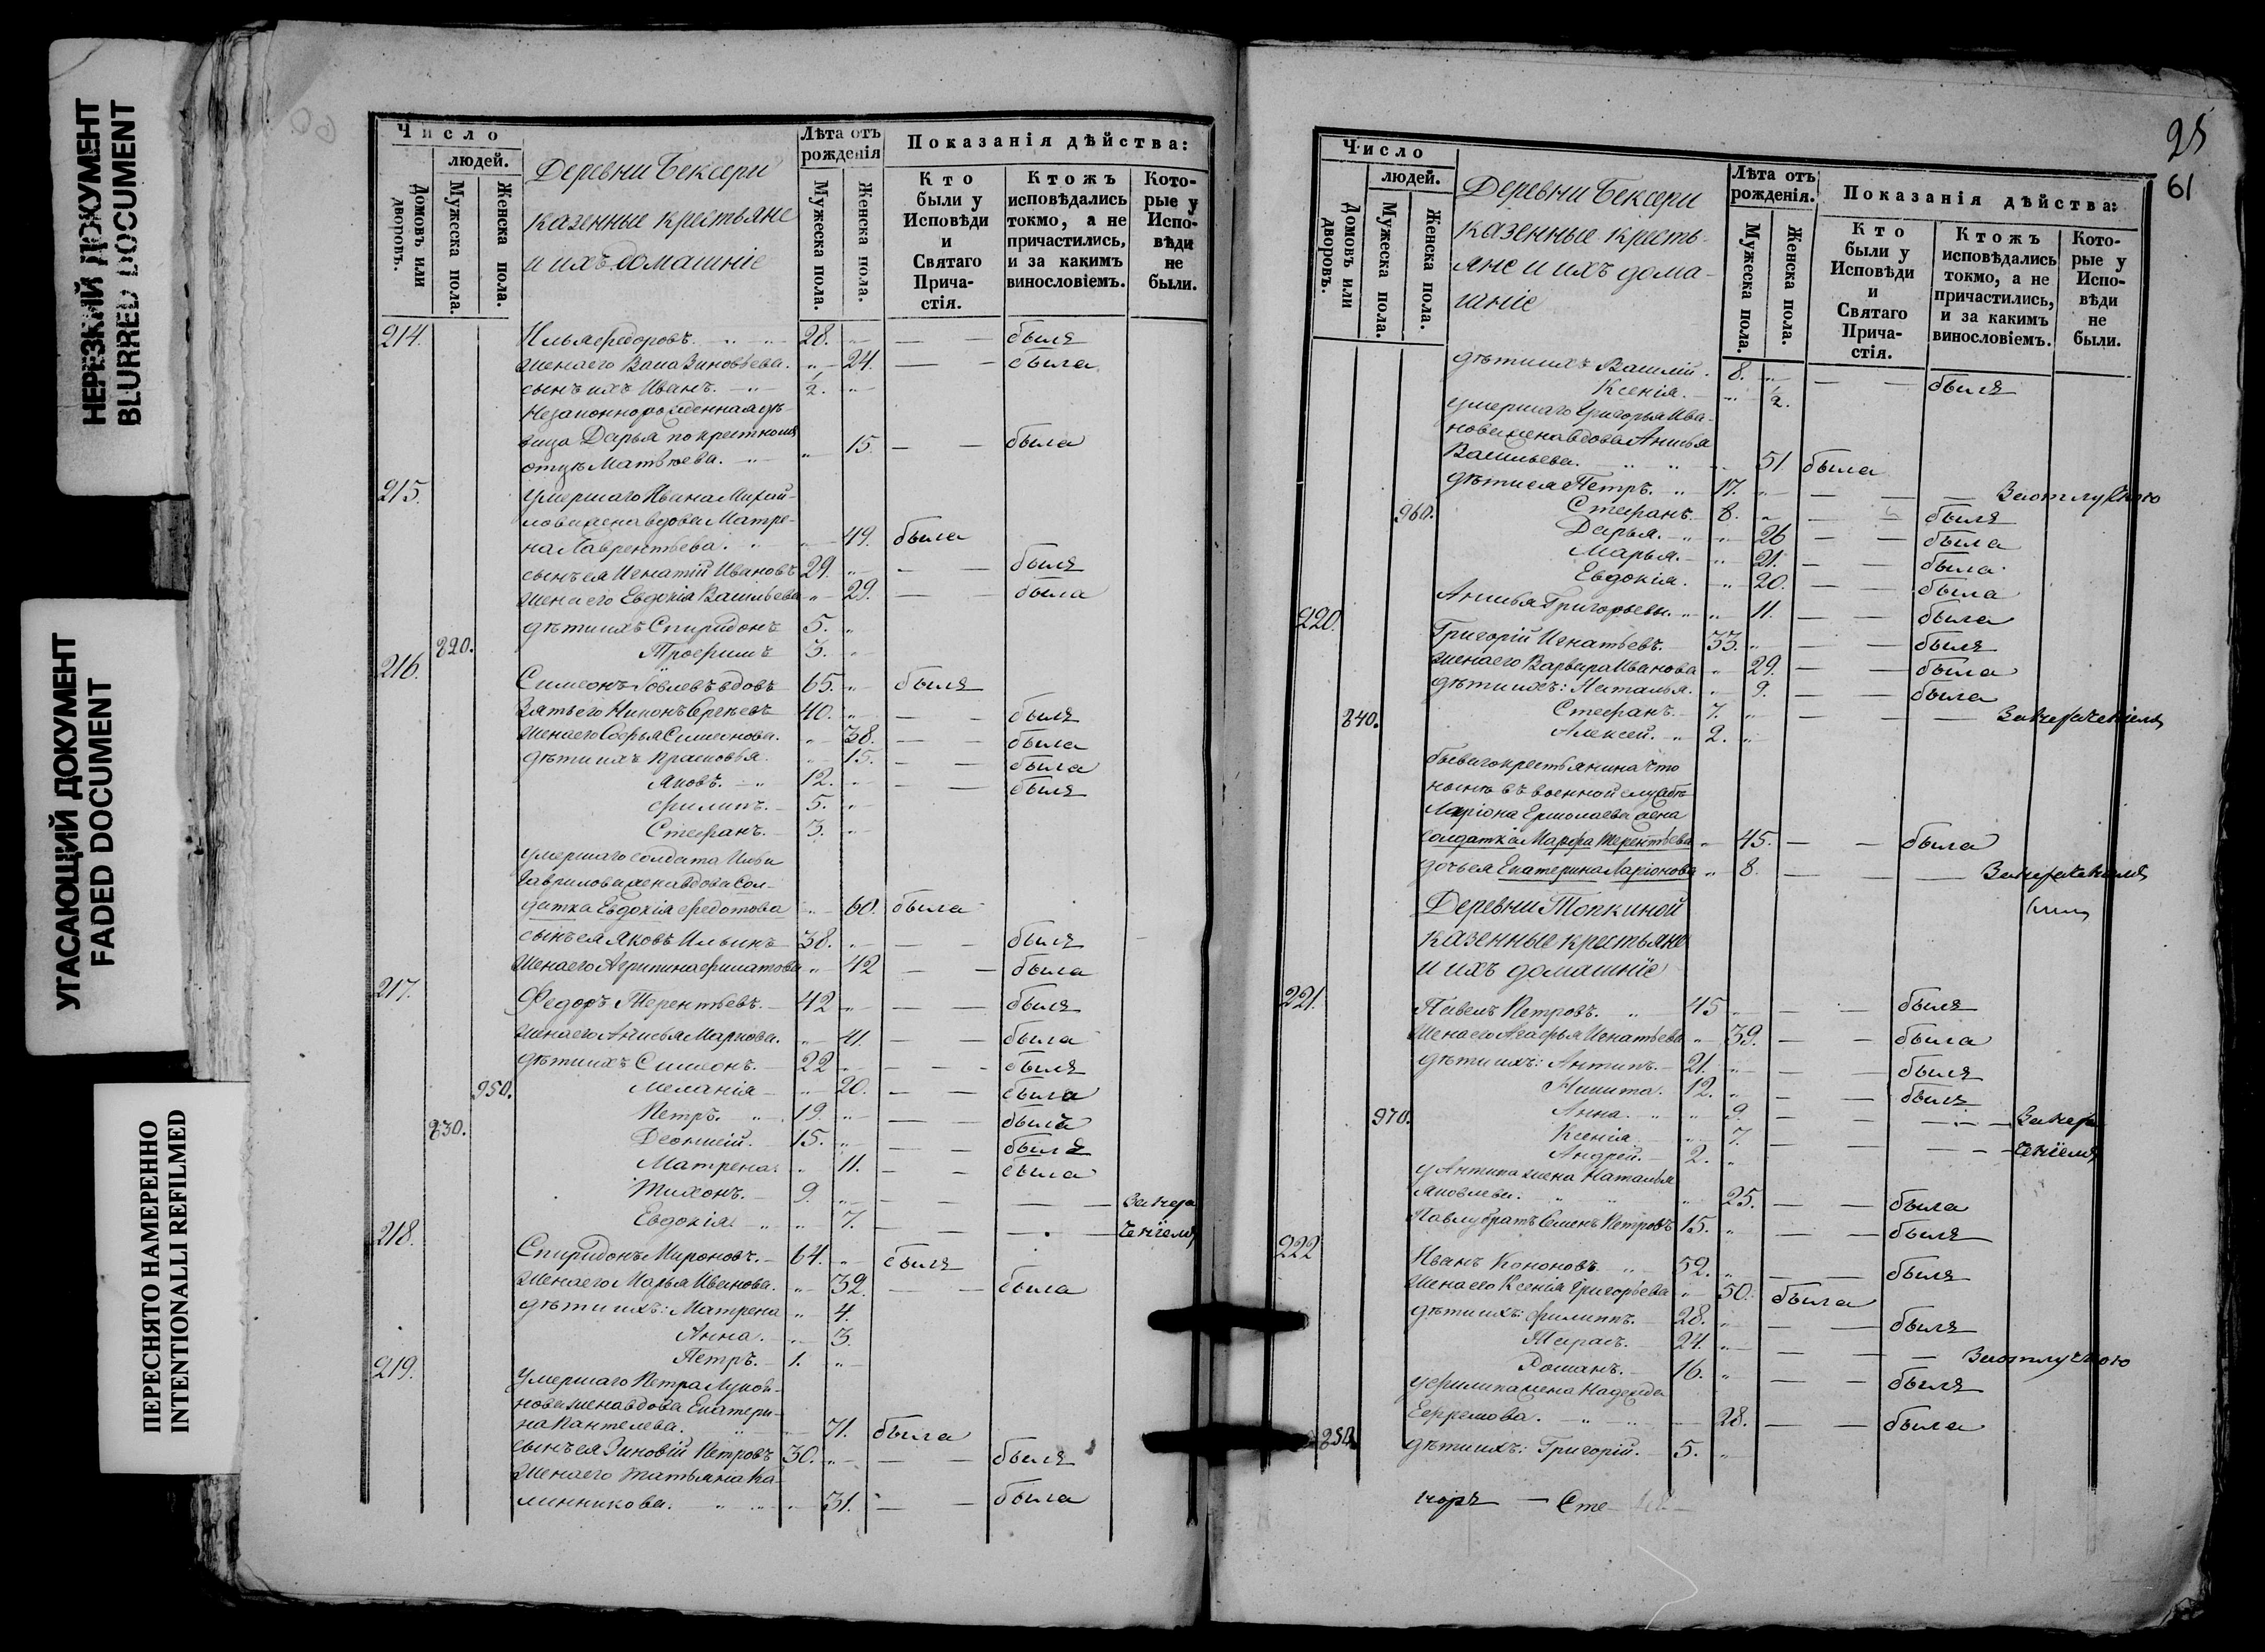 НЕРЕЗКИЙ ДОКУМЕНТ
BLURRED DOCUMENT
УГАСАЮЩИЙ ДОКУМЕНТ
FADED DOCUMENT
ПЕРЕСНЯТО НАМЕРЕННО
INTENTIONALLI REFILMED
Число
людей.
Домовъ или дворовъ.
Мужеска пола.
Женска пола.
Деревни Бексери
казенные крестьяне
и ихъ домашніе
Лѣта отъ рожденія
Мужеска пола.
Женска пола.
Показанія дѣйства:
Кто были у Исповѣди и Святаго Прича-стія.
Ктожъ исповѣдались токмо, а не причастились, и за какимъ винословіемъ.
Кото-рые у Испо-вѣди не были.
214. Илья Федоровъ. 28. — — былъ
жена его Зиновьева. 24. — — была
сынъ ихъ Иванъ. 1/2.
Незаконнорожденная дѣ-
вица Дарья по крестному
отцу Матвѣева. 15. — — была
215. умершаго Ивана Михай-
лова жена вдова Матре-
на Лаврентьева. 49. была
сынъ ея Игнатій Ивановъ 29. — — былъ
жена его Евдокія Васильева 29. — — была
дѣти ихъ Спиридонъ 5.
820. Трофимъ 3.
216. Симеонъ Іовлевъ вдовъ 65. былъ
зять его Никонъ Сергѣевъ 40. — — былъ
жена его Софья Симеонова. 38. — — была
дѣти ихъ Прасковья 15. — — была
Яковъ. 12. — — былъ
Филипъ. 5.
Стефанъ. 3.
умершаго солдата Ильи
Гаврилова жена вдова сол-
датка Евдокія Федотова 60. была
сынъ ея Яковъ Ильинъ 38. — — былъ
жена его Агрипина Филатова 42 — — была
217. Федоръ Терентьевъ. 42 — — былъ
жена его Анисья Маркова. 41. — — была
дѣти ихъ Симеонъ. 22 — — былъ
950. Меланія 20. — — была
Петръ. 19. — — былъ
830. Деонисій. 15. — — былъ
Матрена 11. — — была
Тихонъ. 9. — — За мера
Евдокія 7. — —
218. Спиридонъ Мироновъ. 64. былъ
жена его Марья Иванова. 32. — — была
дѣти ихъ: Матрена 4.
Анна. 3.
Петръ. 1.
219. умершаго Петра
нова жена вдова Екатери-
на Пантелева. 71. была
сынъ ея Зиновій Петровъ 30. — — былъ
жена его Татьяна Ка-
линникова. 31. — — была
25
61
Число
людей.
Домовъ или дворовъ.
Мужеска пола.
Женска пола.
Деревни Бексери
казенные кресть-
яне и ихъ дома-
шніе
Лѣта отъ рожденія.
Мужеска пола.
Женска пола.
Показанія дѣйства:
Кто были у Исповѣди и Святаго Прича-стія.
Ктожъ исповѣдались токмо, а не причастились, и за какимъ винословіемъ.
Кото-рые у Испо-вѣди не были.
дѣти ихъ Василій. 8. — — былъ
Ксенія. 1/2.
умершаго Григорья Ива-
нова жена вдова Анисья
Васильева. 51 была
дѣти ея Петръ. 17. — — — За отлучкою
960. Стефанъ 8. — — былъ
Дарья. 26 — — была
Марья. 21. — — была
Евдокія. 20. — — была
Анисья Григорьевы. 11. — — была
220. Григорій Игнатьевъ. 33. — — былъ
жена его Варвара Иванова 29. — — была
дѣти ихъ: Наталья. 9. — — была
840. Стефанъ. 7. — — —
Алексей. 2.
бывшаго крестьянина что
нынѣ въ военной службѣ
Ларіона Ермолаева жена
солдатка Марфа Терентьева 45. — — была
дочь ея Екатерина Ларіонова 8. — —
Деревни Топкиной
казенные крестьяне
и ихъ домашніе
221. Павелъ Петровъ. 45 — — былъ
жена его Агафья Игнатьева 39. — — была
дѣти ихъ: Антипъ. 21. — — былъ
Никита. 12. — — былъ
970. Анна. 9. — —
Ксенія 7. — —
Андрей. 2.
у Антипа жена Наталья
Яковлева. 25. — — была
Павлу братъ Семенъ Петровъ 15. — — былъ
222 Иванъ Кононовъ 52. — — былъ
жена его Ксенія Григорьева 50. была
дѣти ихъ: Филиппъ. 28. — — былъ
Тарасъ. 24. — — — За отлучкою
Романъ. 16. — — былъ
у Филипа жена Надежда
Ефремова. 28. — — была
850. дѣти ихъ: Григорій. 5.